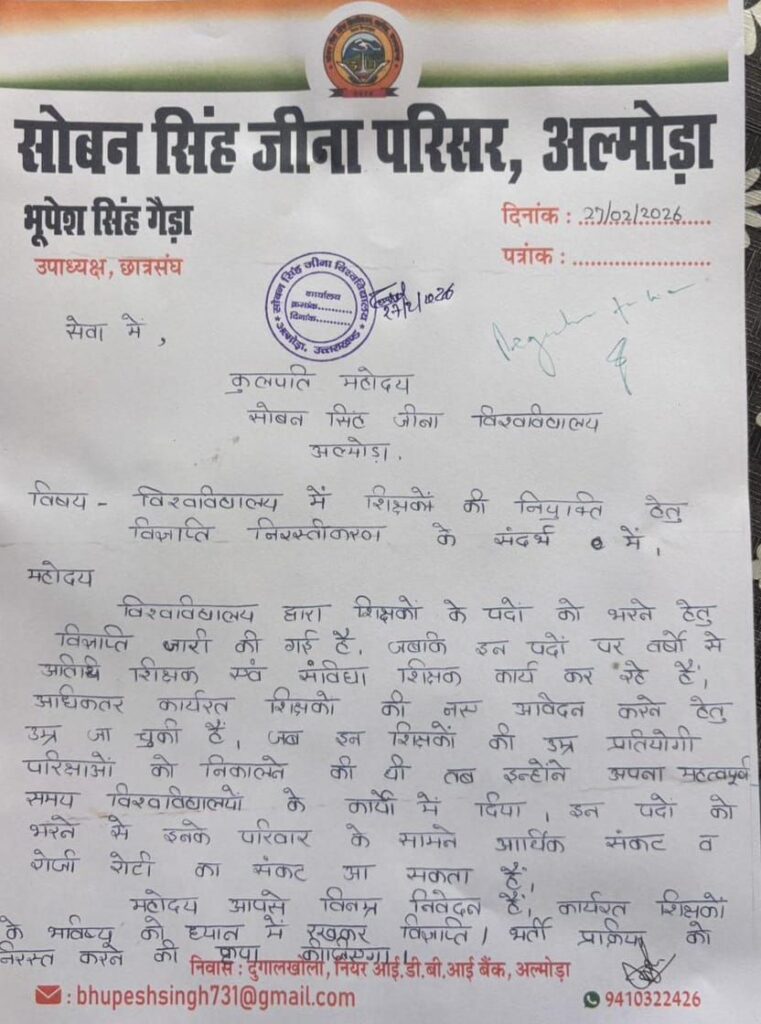 सोबन सिंह जीना परिसर, अल्मोड़ा
भूपेश सिंह गैड़ा
उपाध्यक्ष, छात्रसंघ
दिनांक : 27/02/2026
पत्रांक : ........................
सोबन सिंह जीना विश्वविद्यालय
कार्यालय
क्रमांक...........
दिनांक...........
अल्मोड़ा, उत्तराखण्ड
27/2/2026
सेवा में ,
कुलपति महोदय
सोबन सिंह जीना विश्वविद्यालय
अल्मोड़ा.
विषय - विश्वविद्यालय में शिक्षकों की नियुक्ति हेतु
विज्ञप्ति निरस्तीकरण के संदर्भ में,
महोदय
विश्वविद्यालय द्वारा शिक्षकों के पदों को भरने हेतु
विज्ञप्ति जारी की गई है. जबकि इन पदों पर वर्षों से
अतिथि शिक्षक एवं संविदा शिक्षक कार्य कर रहे हैं,
अधिकतर कार्यरत शिक्षकों की नए आवेदन करने हेतु
उम्र जा चुकी हैं, जब इन शिक्षकों की उम्र प्रतियोगी
परिक्षाओं को निकालने की थी तब इन्होंने अपना महत्वपूर्ण
समय विश्वविद्यालयों के कार्यों में दिया, इन पदों को
भरने से इनके परिवार के सामने आर्थिक संकट व
रोजी रोटी का संकट आ सकता हैं,
महोदय आपसे विनम्र निवेदन हैं, कार्यरत शिक्षकों
के भविष्य को ध्यान में रखकर विज्ञप्ति / भर्ती प्रक्रिया को
निरस्त करने की कृपा कीजिएगा।
निवास : दुगालखोला, नियर आई.डी.बी.आई बैंक, अल्मोड़ा
: bhupeshsingh731@gmail.com
9410322426